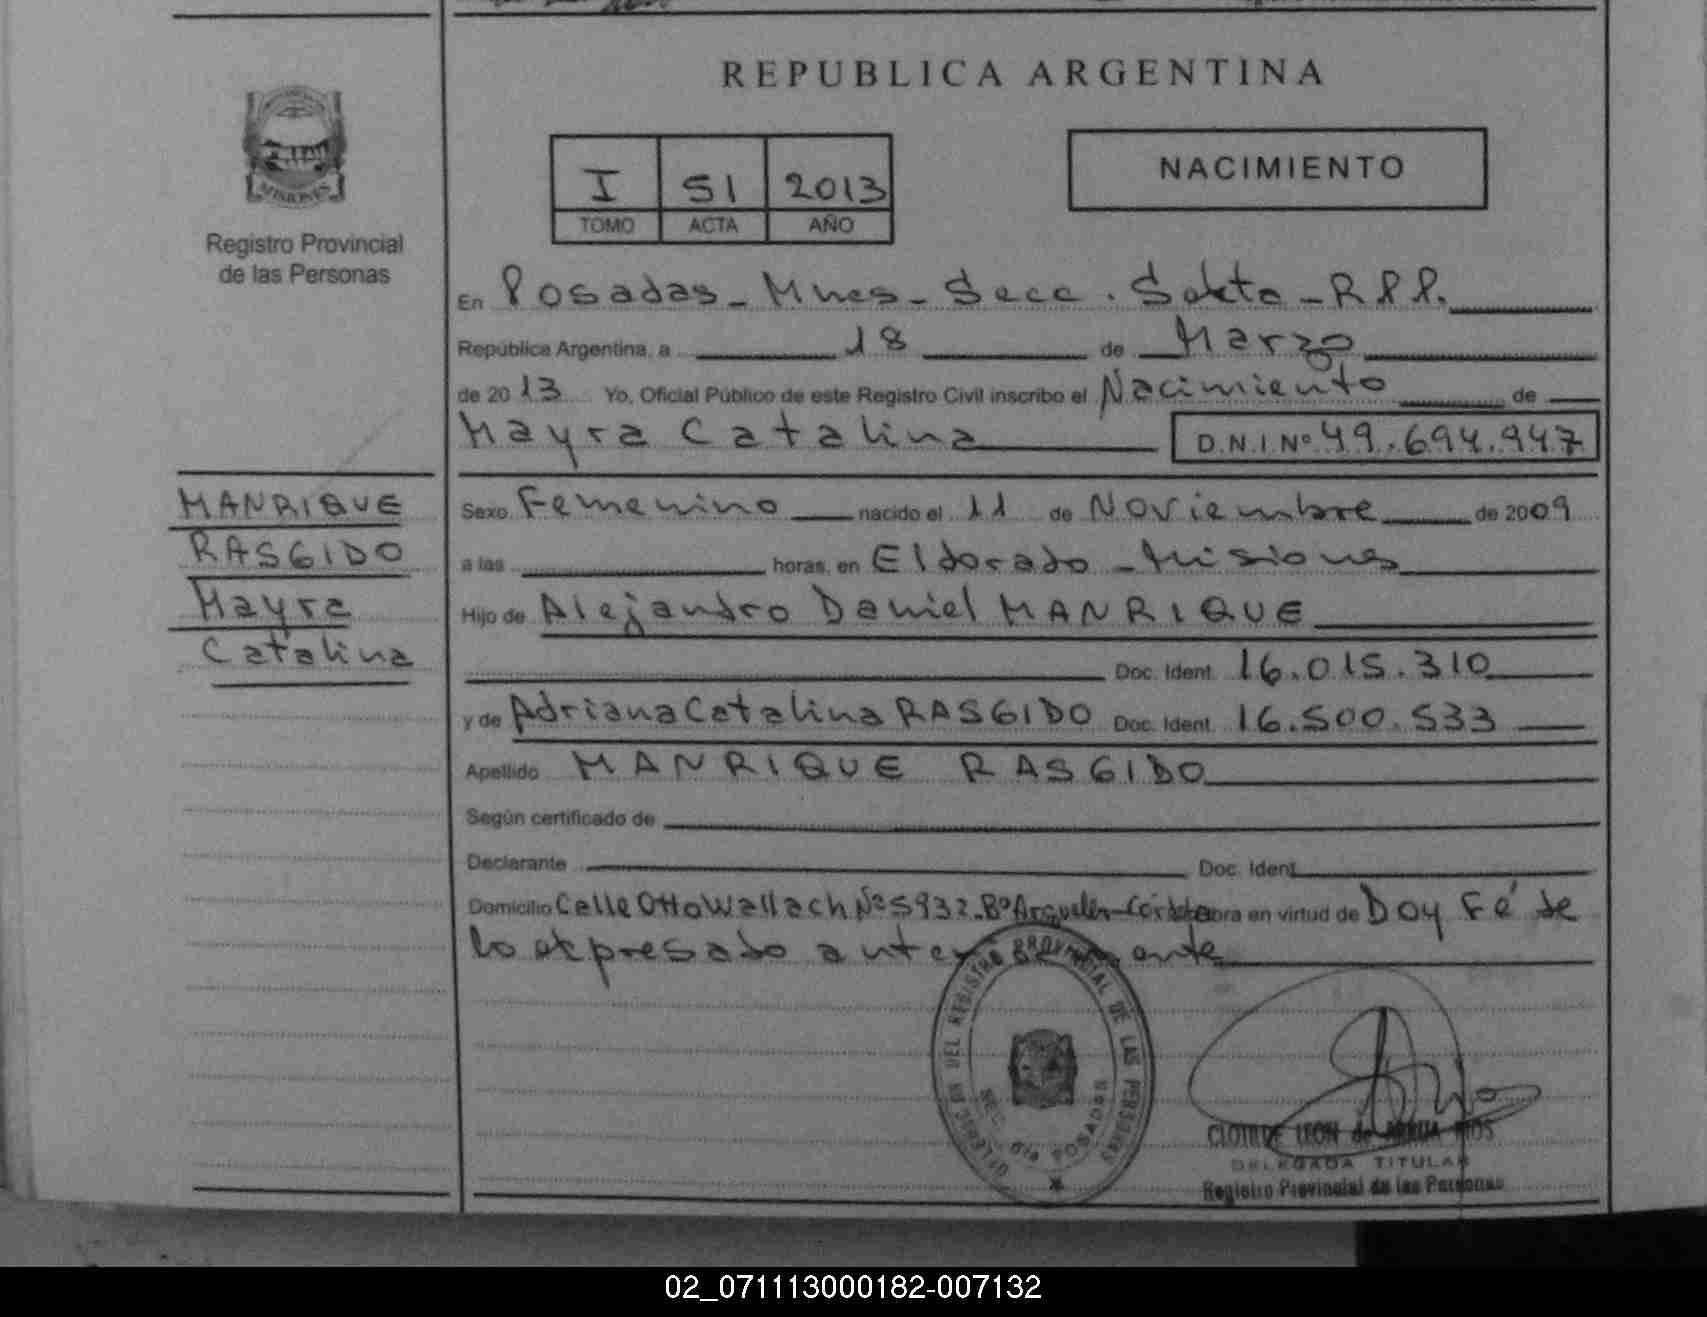 REPUBLICA ARGENTINA
MISIONES
Registro Provincial
de las Personas
I 51 2013
TOMO ACTA AÑO
NACIMIENTO
En Posadas - Mnes - Secc. Sexta - R.P.P.
República Argentina, a 18 de Marzo
de 2013 Yo, Oficial Público de este Registro Civil inscribo el Nacimiento de
Mayra Catalina D.N.I. Nº 49.694.947
MANRIQUE
RASGIDO
Mayra
Catalina
Sexo Femenino nacido el 11 de Noviembre de 2009
a las horas, en Eldorado - Misiones
Hijo de Alejandro Daniel MANRIQUE
Doc. Ident. 16.015.310
y de Adriana Catalina RASGIDO Doc. Ident. 16.500.533
Apellido MANRIQUE RASGIDO
Según certificado de
Declarante Doc. Ident.
Domicilio Calle Otto Wallach Nº 5932 - Bº Arguello - Córdoba obra en virtud de Doy Fé de
lo expresado anteriormente
DELEGACION DEL REGISTRO PROVINCIAL DE LAS PERSONAS
SEC. 6ta POSADAS
CLOTILDE LEON de RIOS
DELEGADA TITULAR
Registro Provincial de las Personas
02_071113000182-007132